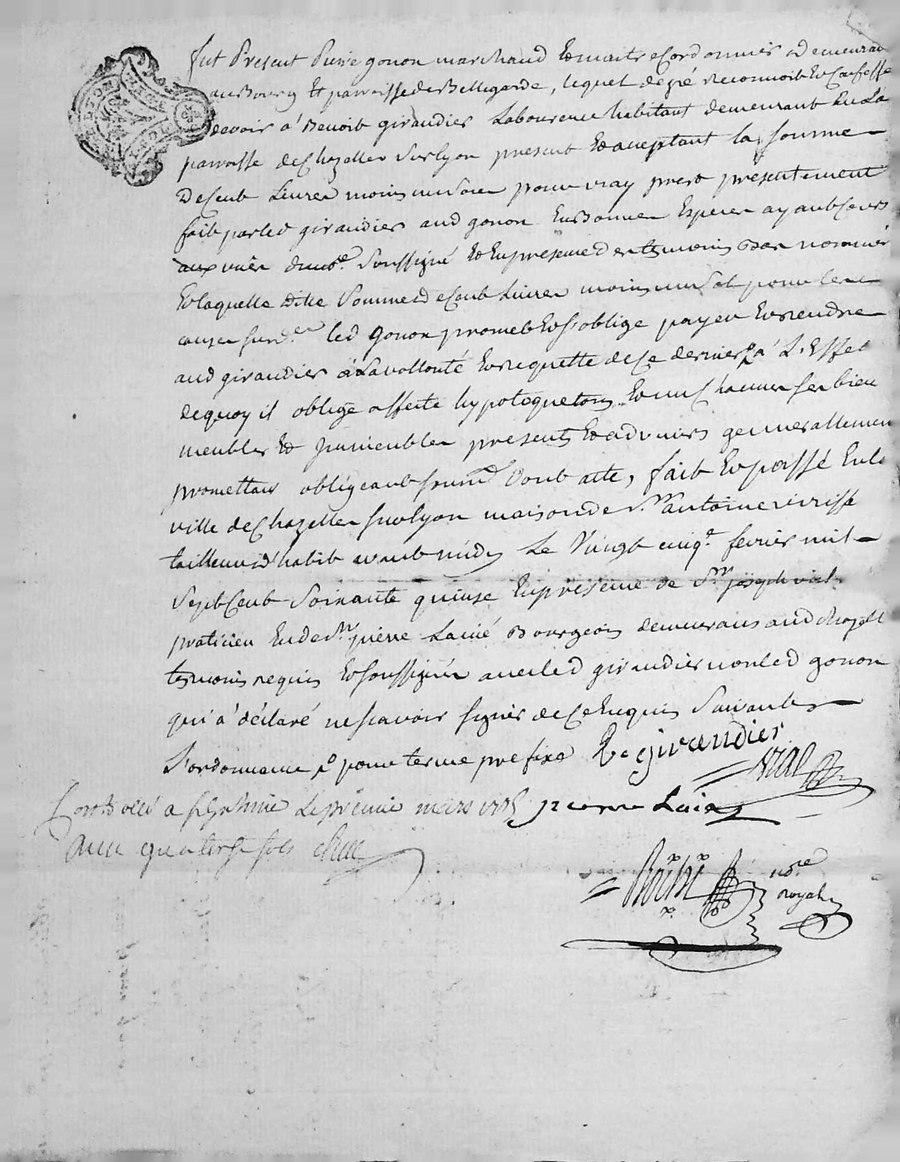 fut Present Pierre gonon marchand Et maitre Cordonnier Demeurant
au Bourg Et parroisse de Bellegarde, lequel de gré Reconnoit Et Confesse
devoir a' Benoit giraudier Laboureur habitant demeurant En La
parroisse de Chazelles Sur lyon present Et aceptant la somme
De Cent Livres moins un Sol pour vray prest presentement
fait par led giraudier aud gonon En Bonnes Especes ayant Cours
aux vuës du no.re Soussigné Et En presence des temoins Bas nommés
Et laquelle ditte Somme de Cent Livres moins un Sol pour les
causes sus d.es led gonon promet Et s'oblige payer Et Rendre
aud giraudier a La vollonté Et Requette de Ce dernier a' L'Effet
de quoy il oblige affecte hypoteque tous Et un Chacuns ses biens
meubles Et Immeubles presents Et advenirs generallement
promettant obligeant Dont acte, fait Et passé En la
ville de Chazelles sur lyon maison de S.r antoine
tailleur d'habit avant midy Le Vingt cinq.e fevrier mil
Sept Cent Soixante quinze En presence de S.r joseph vial
praticien Et de S.r pierre Lainé Bourgeois demeurans aud Chazelles
temoins requis Et Soussignés avec led giraudier non led gonon
qui a' déclaré ne scavoir signer de Ce Enquis Suivant
L'ordonnance p.r pour terme prefixe B giraudier
Vial
Controllé a st Galmier Le premier mars 1775 pierre Lainé
Reçu quatorze sols
no.re
Royal